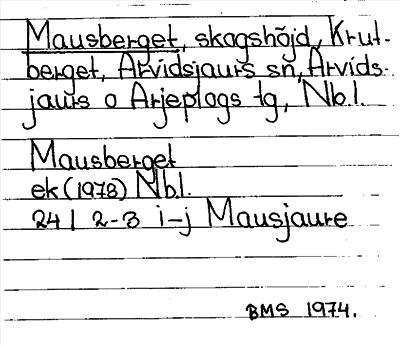 Mausberget, skogshöjd, Krut-
berget, Arvidsjaurs sn, Arvids-
jaurs o Arjeplogs tg, Nbl.
Mausberget
ek (1978) Nbl.
24 I 2-3 i-j Mausjaure
BMS 1974.